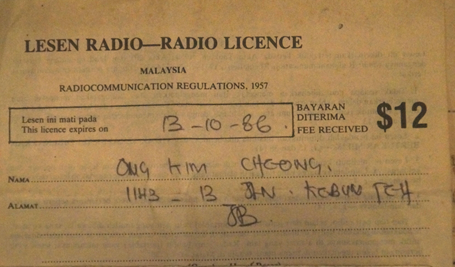 LESEN RADIO—RADIO LICENCE
MALAYSIA
RADIOCOMMUNICATION REGULATIONS, 1957
Lesen ini mati pada
This licence expires on 13-10-86.
BAYARAN
DITERIMA
FEE RECEIVED $12
NAMA ONG KIM CHEONG.
ALAMAT 1143 - 13 JLN. KEBUN TEH
JB.